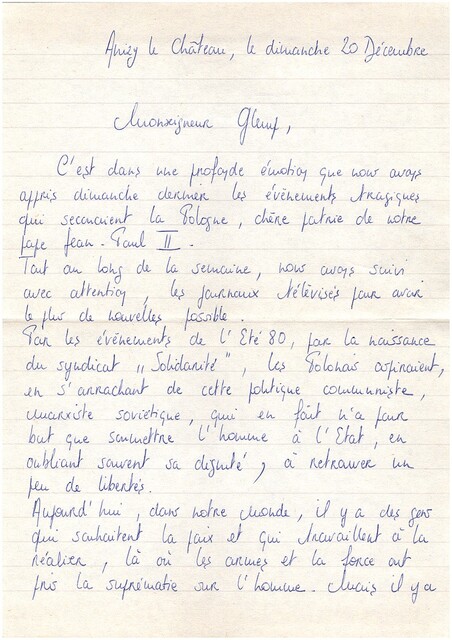 Anizy le Château, le dimanche 20 Décembre
Monseigneur Glemp,
C'est dans une profonde émotion que nous avons
appris dimanche dernier les évènements tragiques
qui secouaient la Pologne, chère patrie de notre
pape Jean-Paul II.
Tout au long de la semaine, nous avons suivi
avec attention, les journaux télévisés pour avoir
le plus de nouvelles possible.
Par les évènements de l'Eté 80, par la naissance
du syndicat "Solidarité", les Polonais aspiraient,
en s'arrachant de cette politique communiste,
marxiste soviétique, qui en fait n'a pour
but que soumettre l'homme à l'Etat, en
oubliant souvent sa dignité, à retrouver un
peu de libertés.
Aujourd'hui, dans notre monde, il y a des gens
qui souhaitent la paix et qui travaillent à la
réaliser, là où les armes et la force ont
pris la suprématie sur l'homme. Mais il y a